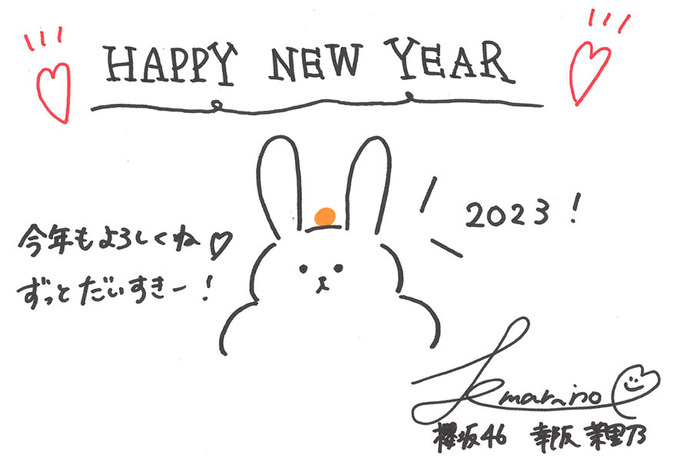 HAPPY NEW YEAR
2023!
今年もよろしくね♡
ずっとだいすきー!
marino
櫻坂46 幸阪 茉里乃